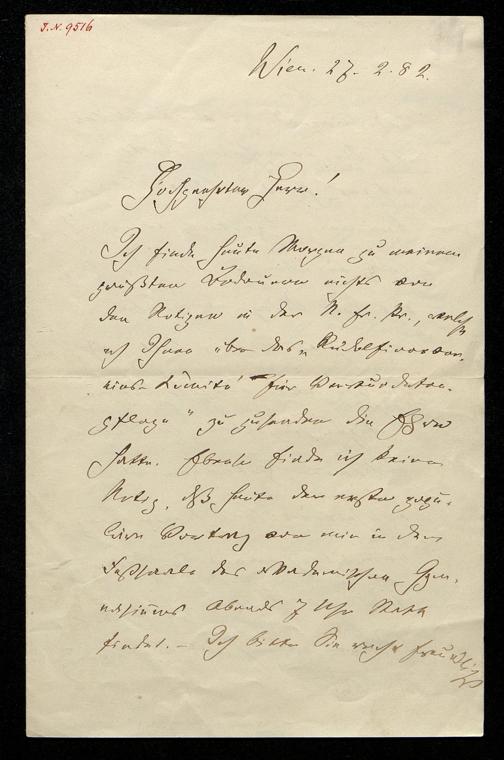 J.N. 9516
Wien. 27. 2. 82.
Hochgeehrter Herr!
Ich finde heute Morgen zu meinem
größten Bedauern nichts von
den Notizen in der N. fr. Pr., welche
ich Ihnen über das „Rudolfinerver-
eins-Comité für Verwundeten-
pflege" zu zusenden die Ehre
hatte. Ebenso finde ich keine
Notiz, daß heute der erste popu-
läre Vortrag von mir in dem
Festsaale des akademischen Gym-
nasiums Abends 7 Uhr statt
findet. – Ich bitte Sie recht freundlichst